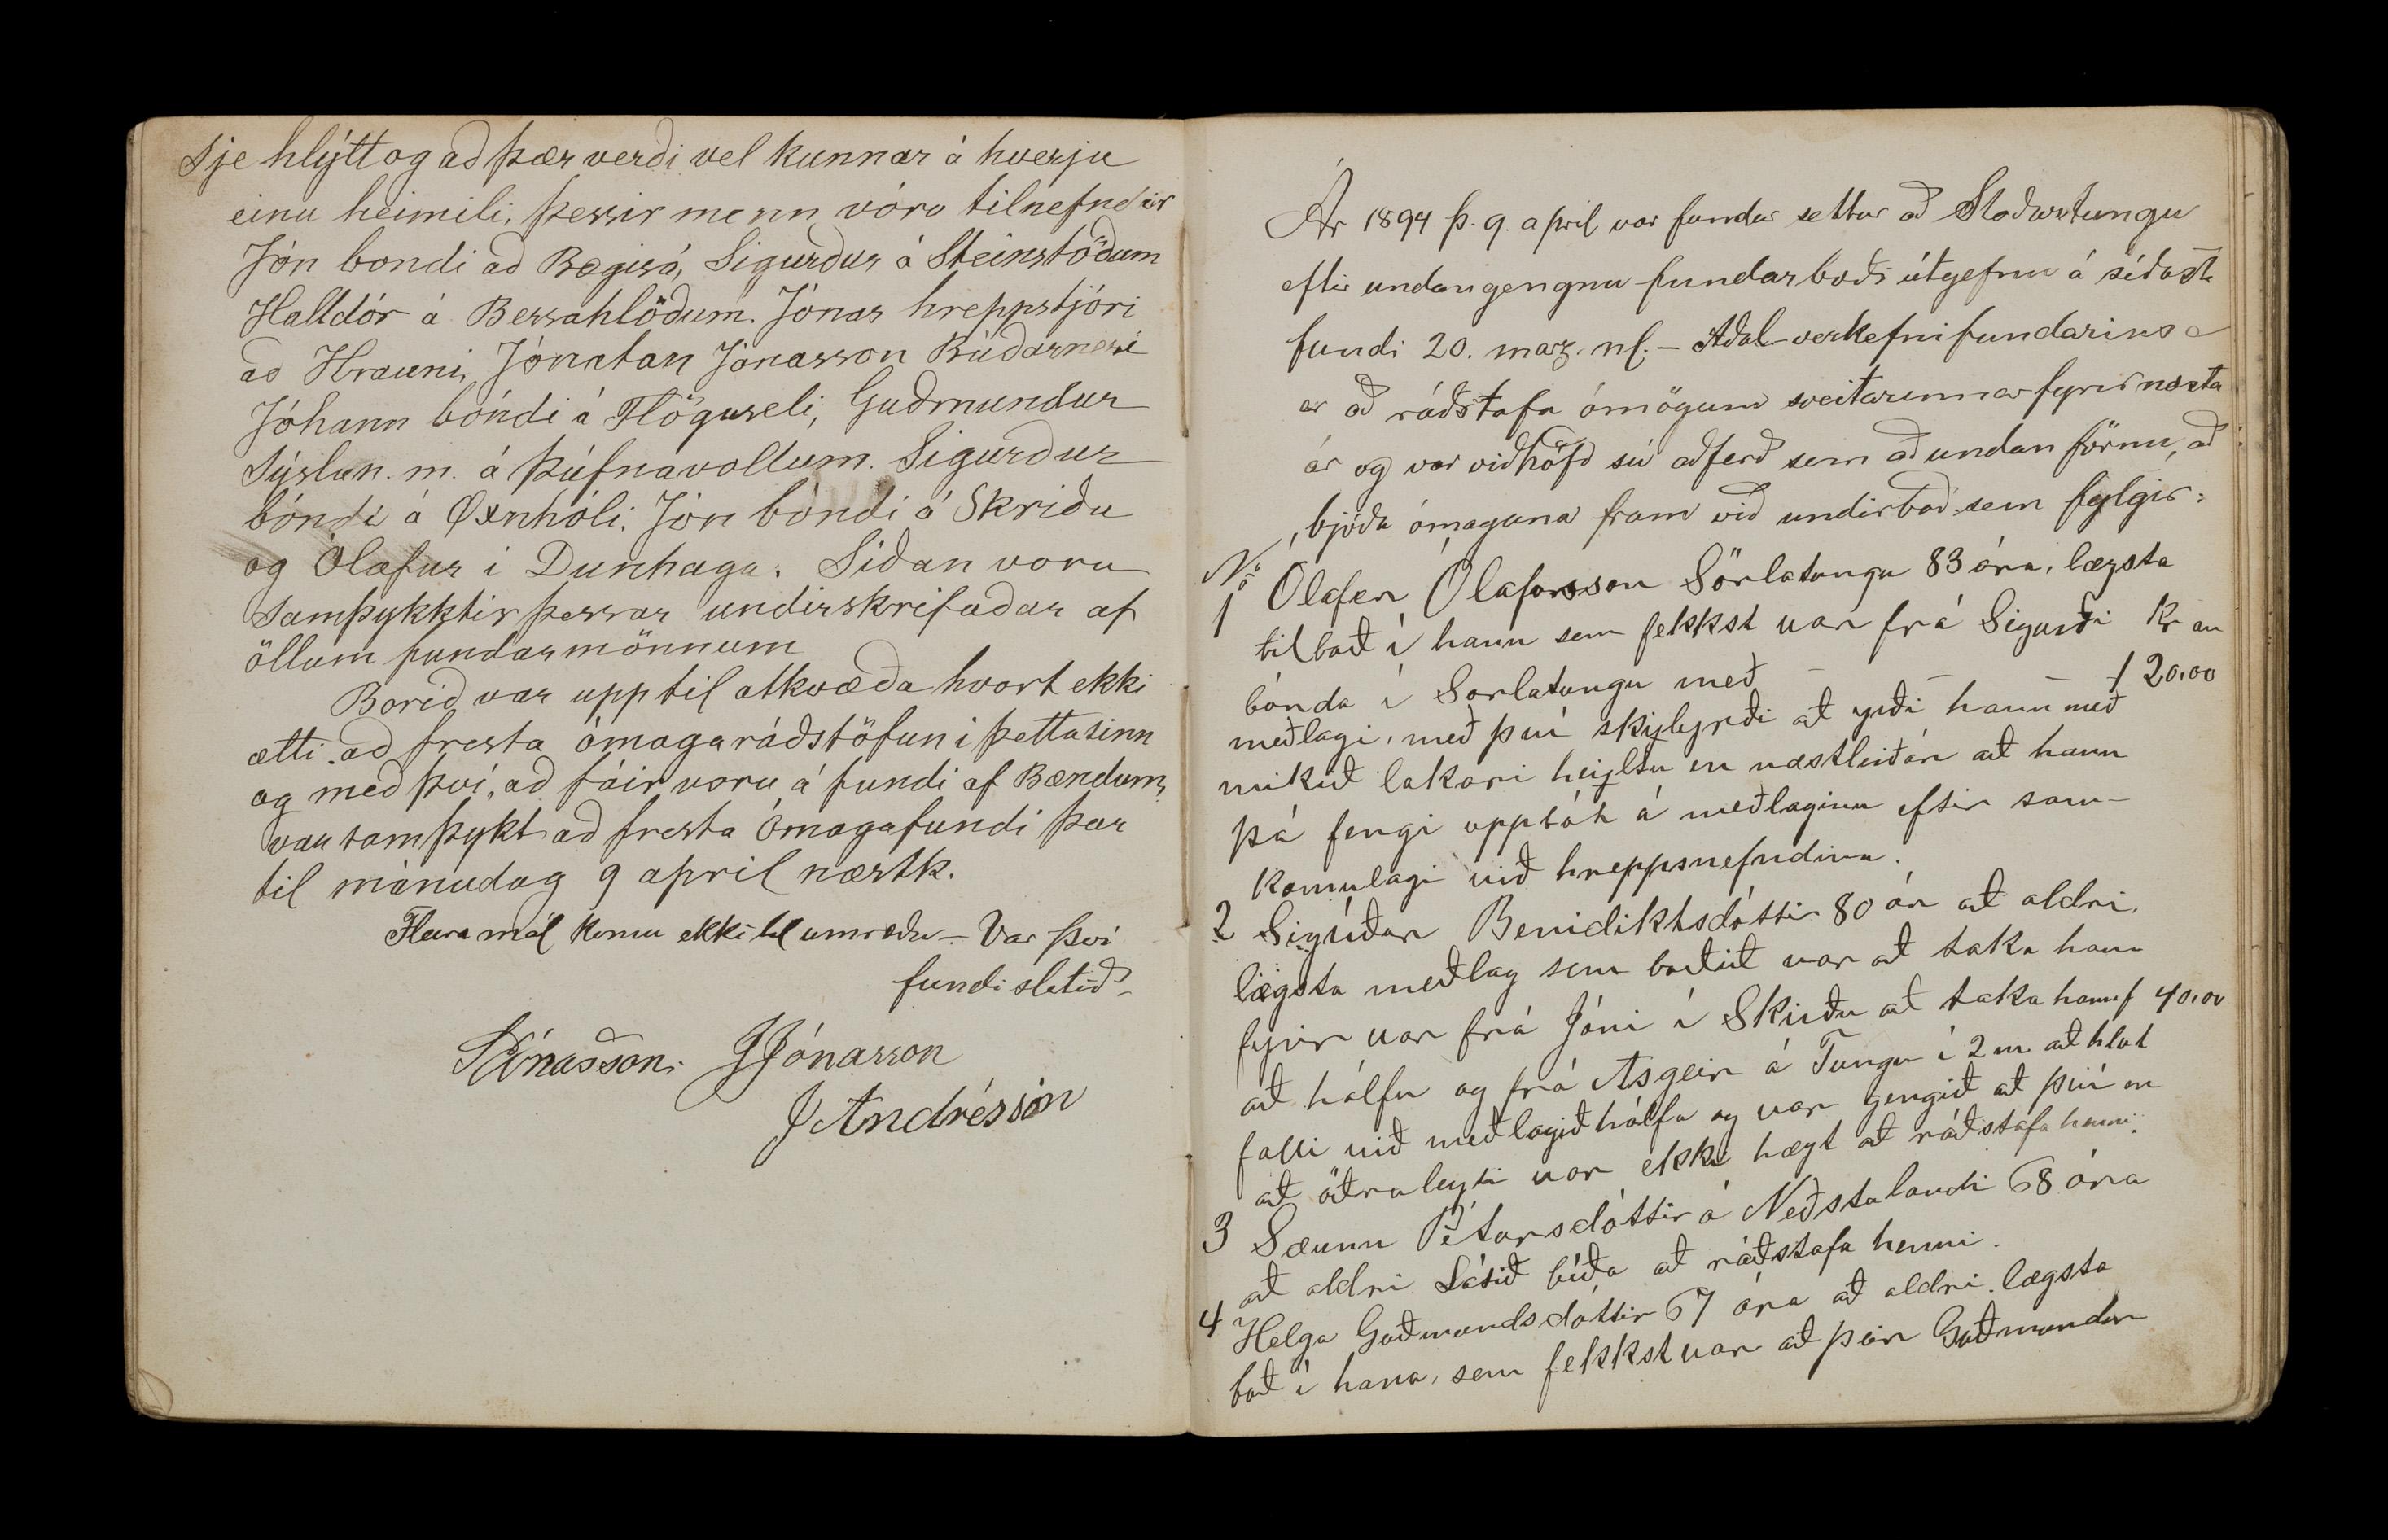 sje hlýtt og að þær verði vel kunnar á hverju
einu heimili. þessir menn vóru tilnefndir
Jón bondi að Bægisá, Sigurður á Steinstöðum
Halldór á Bessahlöðum. Jónas hreppstjóri
að Hrauni, Jónatan Jónasson Búðarnesi
Jóhann bóndi á Flöguseli, Guðmundur
Sýslun. m. á Þúfnavöllum. Sigurður
bóndi á Öxnhóli. Jón bóndi á Skriðu
og Ólafur i Dunhaga. Siðan voru
samþykktir þessar undirskrifaðar af
öllum fundarmönnum
Borið var upp til atkvæða hvort ekki
ætti að fresta ómagaráðstöfun i þetta sinn
og með þvi, að fáir voru á fundi af Bændum,
var samþykt að fresta Ómagafundi þar
til mánudag 9 april næstk.
Fleira mál komu ekki til umræðu – Var því
fundi slitið –
JJónasson
JAndrésson
Ár 1894 þ. 9. april var fundur settur að Staðartungu
eftir undangengnu fundarboði útgefnu á síðasta
fundi 20. marz. nl. – Aðal-verkefni fundarins
er að ráðstafa ómögum sveitarinnar fyrir næsta
ár og var viðhöfð sú aðferð sem að undan förnu, að
bjóða ómagana fram við undirboð sem fylgir:
No
1 Ólafur Ólafursson Sörlatungu 83 ára, lægsta
til boð í hann sem fekkst var frá Sigurði Kr au
bónda í Sörlatungu með – – – 120,00
meðlagi, með því skilyrði að yrði hann með
mikið lakari heylsu en næstliðið ár að hann
þá fengi uppbót á meðlaginu eftir sam-
komulagi við hreppsnefndina.
2 Sigríður Benidikhsdóttir 80 ár að aldri.
lægsta meðlag sem boðið var að taka hana
fyrir var frá Jóni í Skriðu að taka hana f 40,00
að hálfu og frá Asgeir á Tungu í 2 m að hlut
falli við meðlagið hálfa og var gengið að því en
að öðru leyti var ekki hægt að ráðstafa henni.
3 Sæunn Pétursdóttir á Neðstalandi 68 ára
að aldri Látið bíða að ráðstafa henni.
4 Helga Guðmundsdóttir 67 ára að aldri. lægsta
boð í hana, sem fekkst var að þeir Guðmundur